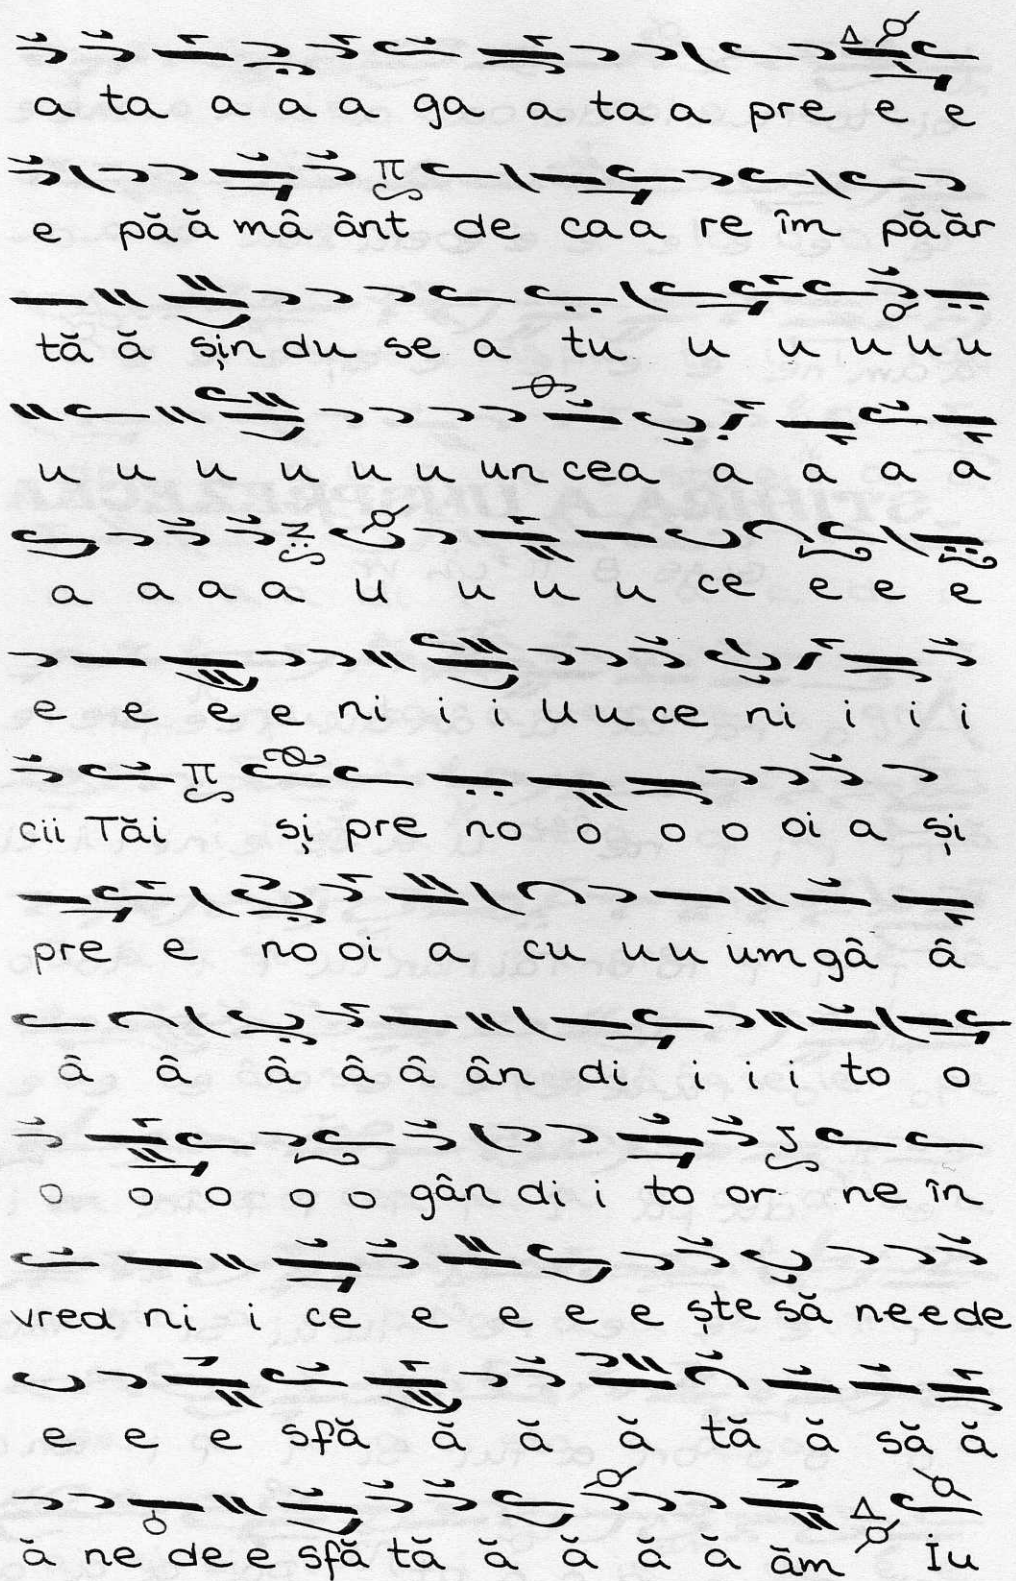 a ta a a a ga a ta a pre e e
e pă ă mâ ânt de ca a re îm pă ăr
tă ă șin du se a tu u u u u u
u u u u u u un cea a a a a
a a a a u u u u ce e e e
e e e e ni i i u u ce ni i i i
cii Tăi și pre no o o o oi a și
pre e no oi a cu u u um gâ â
â â â â â ân di i i i to o
o o o o o gân di i to or ne în
vred ni i ce e e e e ște să ne e de
e e e sfă ă ă ă tă ă să ă
ă ne de e sfă tă ă ă ă ă ăm Iu